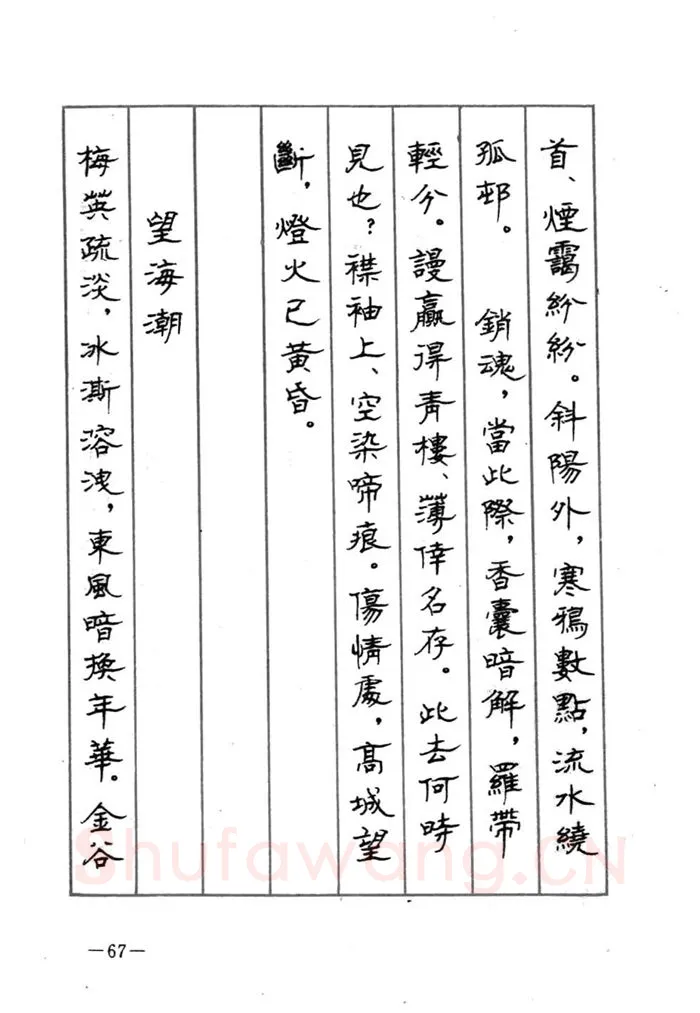 首、煙靄紛紛。斜陽外，寒鴉數點，流水繞
孤邨。　銷魂，當此際，香囊暗解，羅帶
輕分。謾贏得青樓、薄倖名存。此去何時
見也？襟袖上、空染啼痕。傷情處，高城望
斷，燈火已黃昏。
望海潮
梅英疏淡，冰澌溶洩，東風暗換年華。金谷
Shufawang.CN
—67—